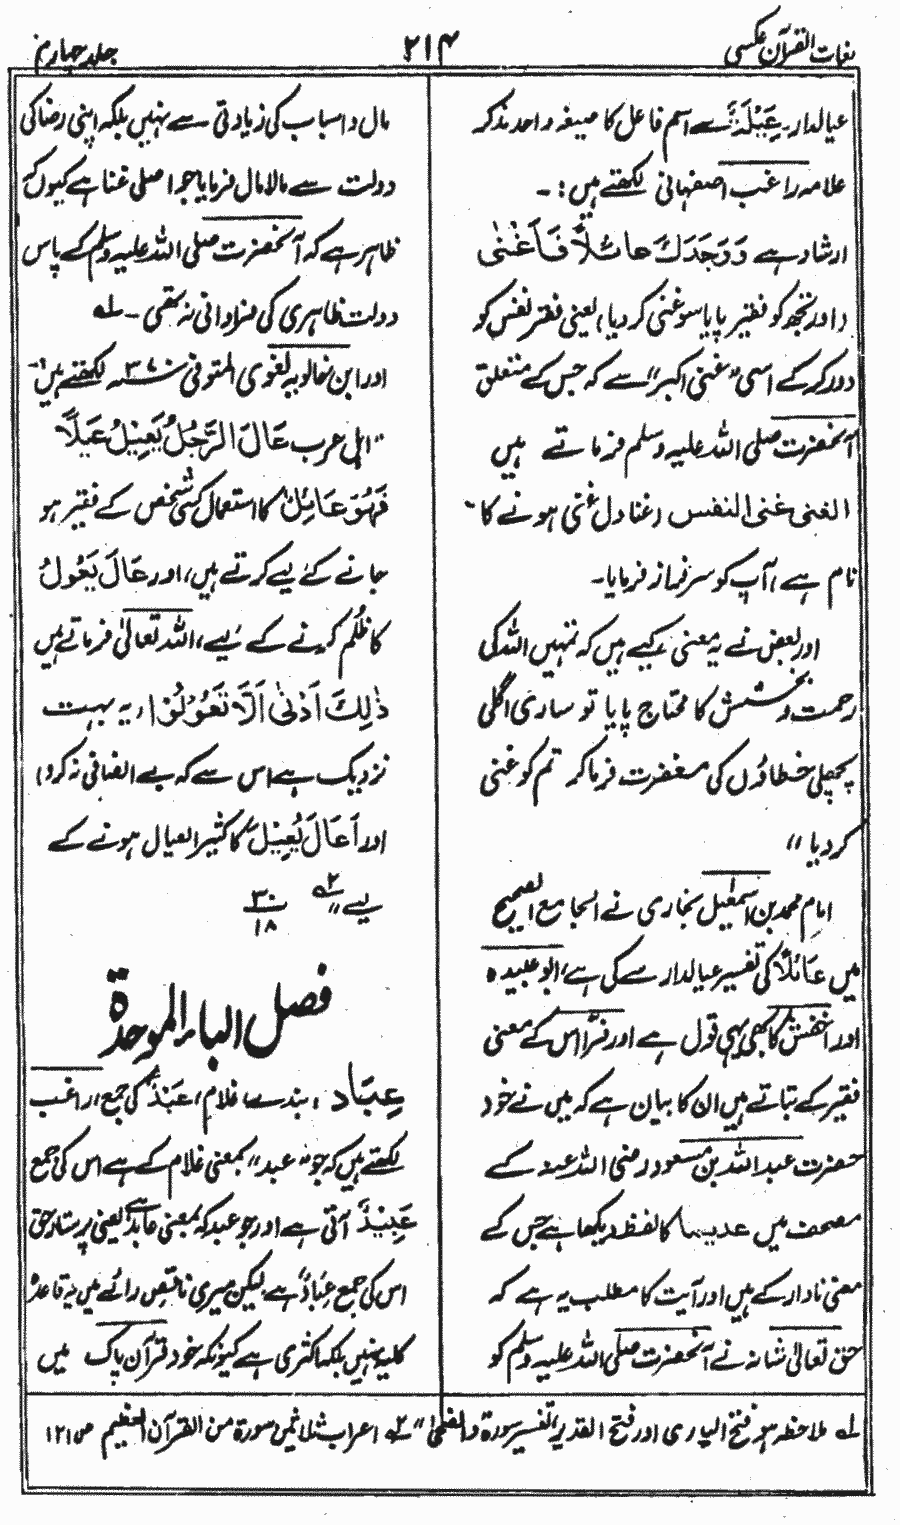 لغات القرآن عکسی
۲۱۴
جلد چہارم
عیالدار۔ عَیْلَۃٌ سے اسم فاعل کا صیغہ واحد مذکر
علامہ راغب اصفہانی لکھتے ہیں :۔
ارشاد ہے وَوَجَدَكَ عَائِلًا فَاَغْنٰی
(اور تجھ کو فقیر پایا سو غنی کر دیا) یعنی فقر نفس کو
دور کر کے اسی "غنی اکبر" سے کہ جس کے متعلق
آنحضرت صلی اللہ علیہ وسلم فرماتے ہیں
الغنی غنی النفس (غنا دل غنی ہونے کا
نام ہے) آپ کو سرفراز فرمایا۔
اور بعض نے یہ معنی کیے ہیں کہ تمہیں اللہ کی
رحمت و بخشش کا محتاج پایا تو ساری اگلی
پچھلی خطاؤں کی مغفرت فرما کر تم کو غنی
کر دیا"
امام محمد بن اسمٰعیل بخاری نے الجامع الصحیح
میں عَائِلًا کی تفسیر عیالدار سے کی ہے، ابو عبیدہ
اور اخفش کا بھی یہی قول ہے اور فراء اس کے معنی
فقیر کے بتاتے ہیں ان کا بیان ہے کہ میں نے خود
حضرت عبداللہ بن مسعود رضی اللہ عنہ کے
مصحف میں عدیما کا لفظ دیکھا ہے جس کے
معنی نادار کے ہیں اور آیت کا مطلب یہ ہے کہ
حق تعالٰی شانہ نے آنحضرت صلی اللہ علیہ وسلم کو
مال و اسباب کی زیادتی سے نہیں بلکہ اپنی رضا کی
دولت سے مالامال فرمایا جو اصلی غنا ہے کیوں کہ
ظاہر ہے کہ آنحضرت صلی اللہ علیہ وسلم کے پاس
دولت ظاہری کی فراوانی نہ تھی۔ لہ
اور ابن خالویہ لغوی المتوفی ۳۷۰ھ لکھتے ہیں
"اہل عرب عَالَ الرَّجُلُ یَعِیْلُ عَیْلًا
فَهُوَ عَائِلٌ کا استعمال کسی شخص کے فقیر ہو
جانے کے لیے کرتے ہیں، اور عَالَ یَعُوْلُ
کا ظلم کرنے کے لیے، اللہ تعالیٰ فرماتے ہیں
ذٰلِكَ اَدْنٰی اَلَّا تَعُوْلُوْا (یہ بہت
نزدیک ہے اس سے کہ بے انصافی نہ کرو)
اور اَعَالَ یُعِیْلُ کا کثیر العیال ہونے کے
لیے" ۲ہ
۳۰
۱۸
فصل الباء الموحدۃ
عِبَاد : بندے، غلام، عَبْدٌ کی جمع، راغب
لکھتے ہیں کہ جو "عبد" بمعنی غلام کے ہے اس کی جمع
عَبِیْدٌ آتی ہے اور جو عبد کہ بمعنی عابد ہے یعنی پرستار حق
اس کی جمع عِبَادٌ ہے، لیکن میری ناقص رائے میں یہ قاعدہ
کلیہ نہیں بلکہ اکثری ہے کیونکہ خود قرآن پاک میں
لہ ملاحظہ ہو فتح الباری اور فتح القدیر، تفسیر سورۃ والضحیٰ" ۲ہ اعراب ثلاثین سورۃ من القرآن العظیم ص ۱۲۱